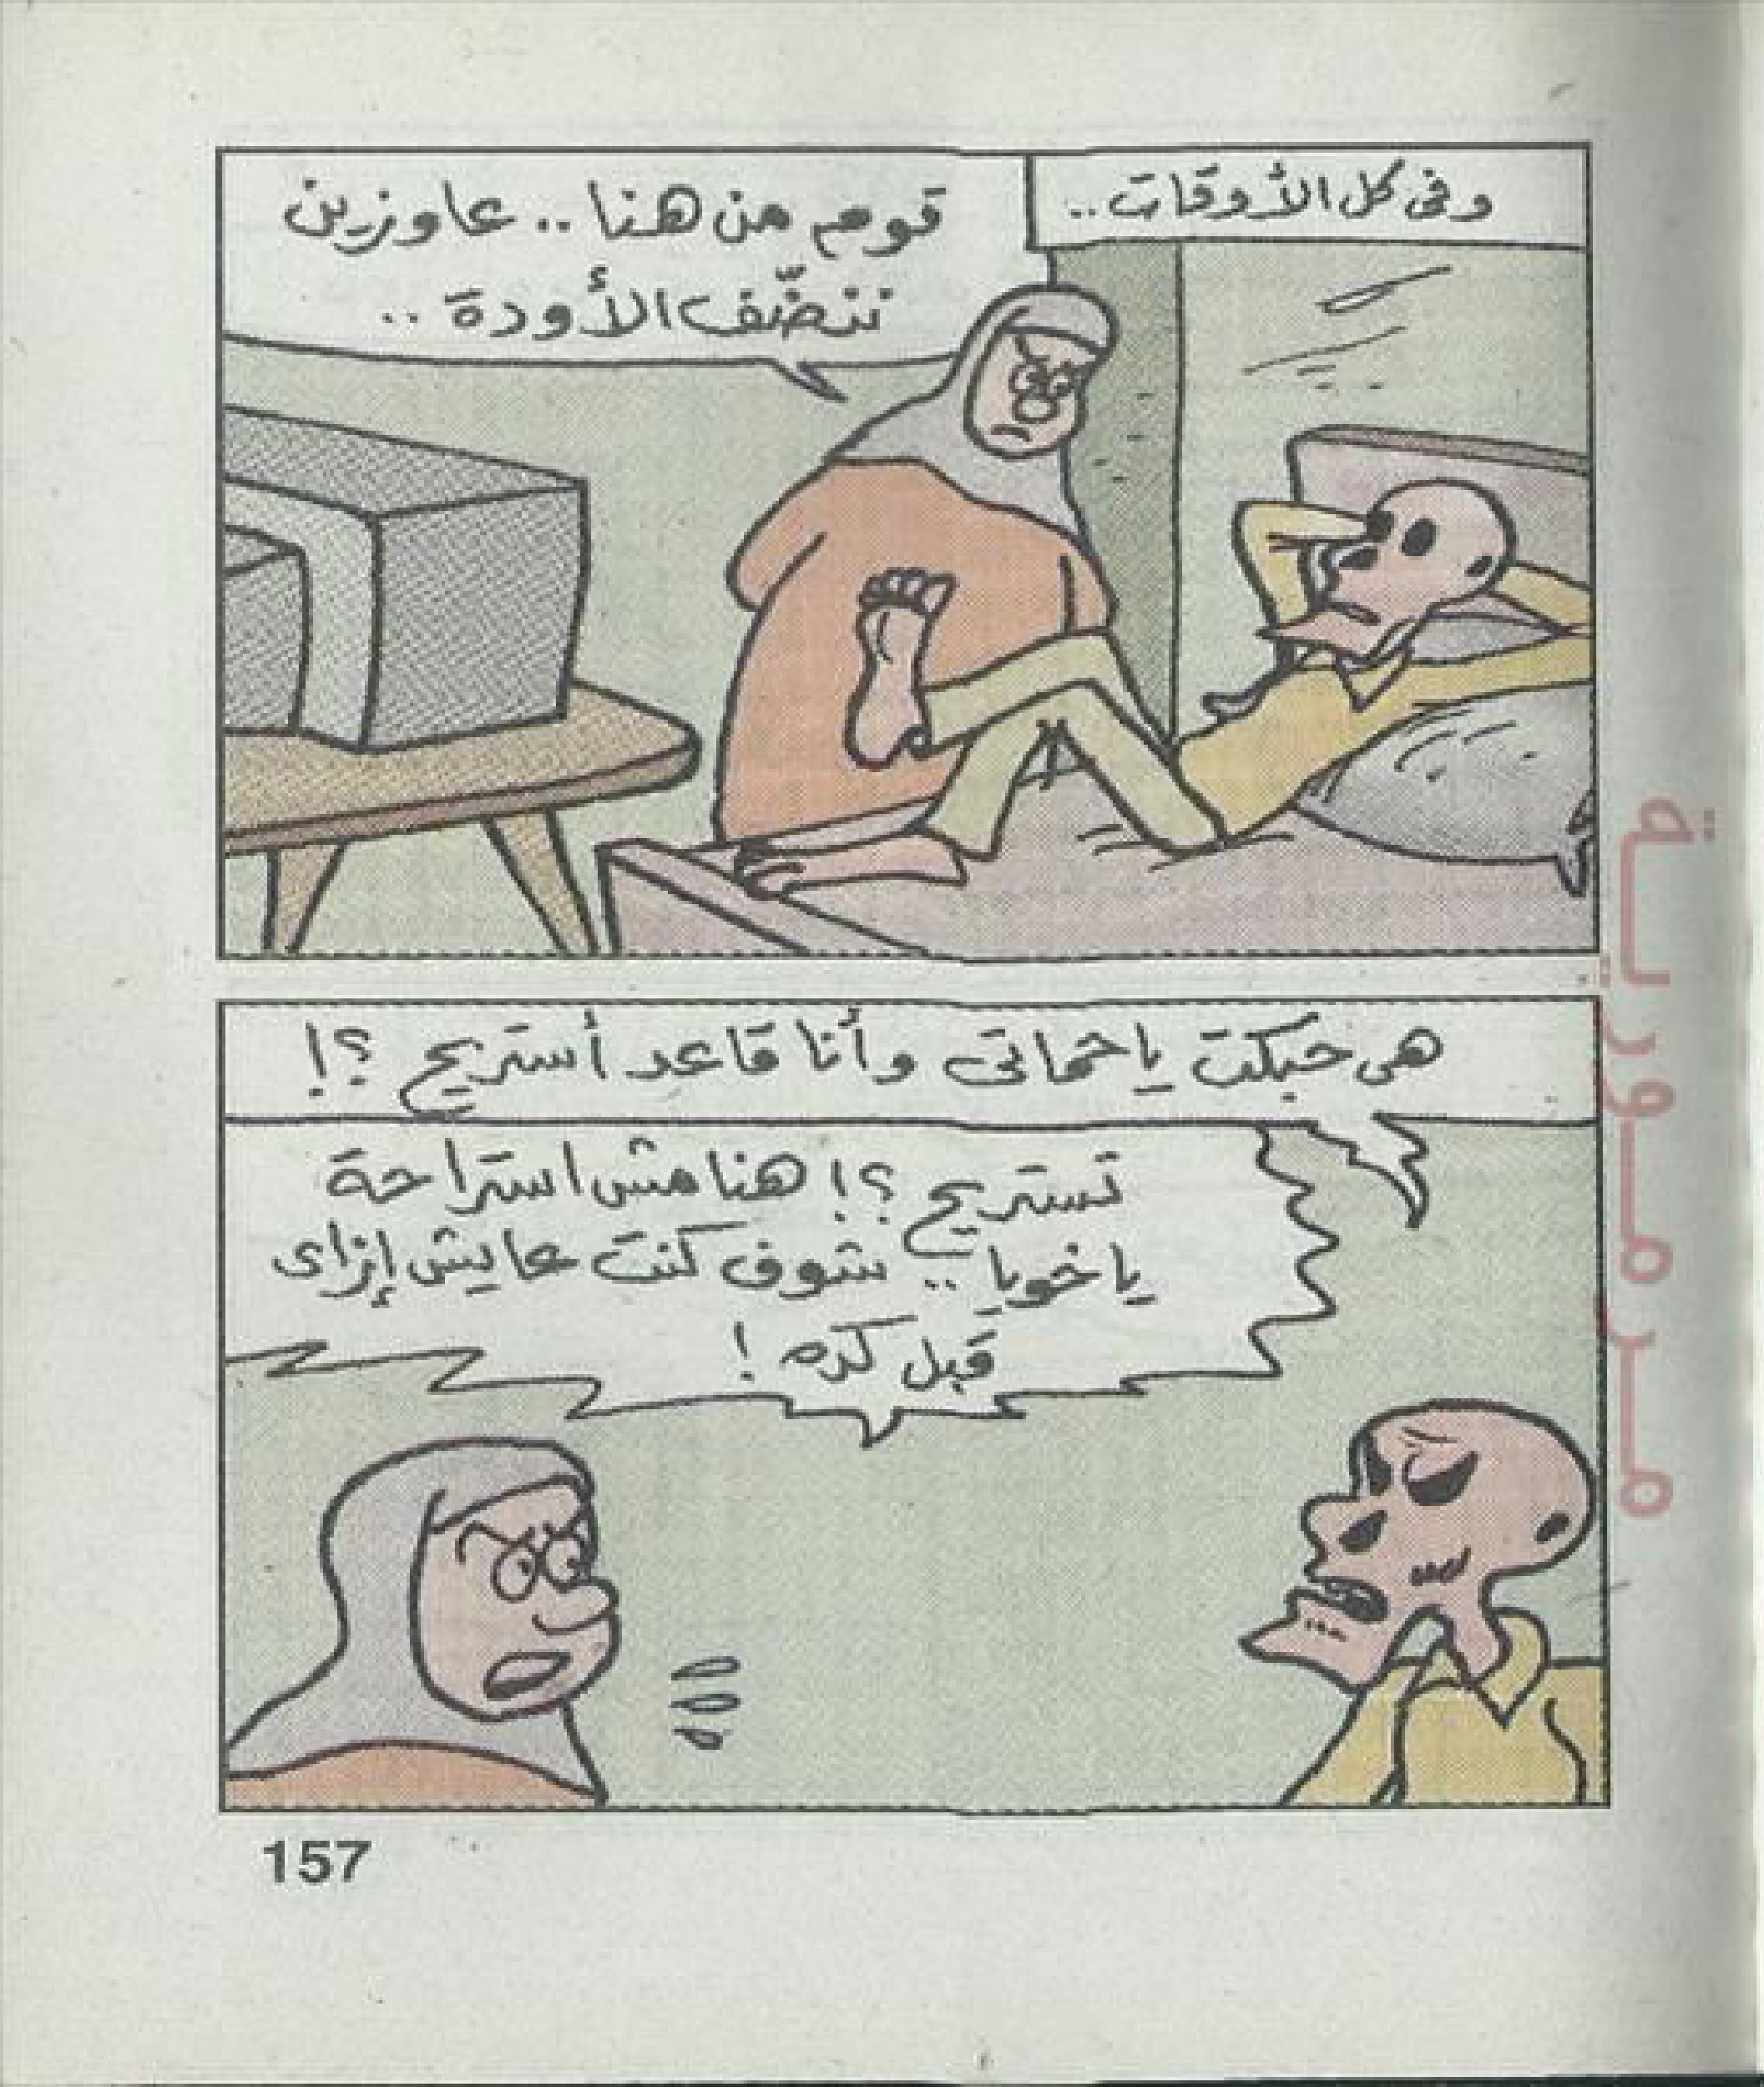 وفى كل الأوقات..
قوم من هنا.. عاوزين
ننضّف الأودة..
هى حبكت ياحماتى وأنا قاعد أستريح ؟!
تستريح ؟! هنا مش استراحة
ياخويا.. شوف كنت عايش إزاى
قبل كده !
مرمورية
157